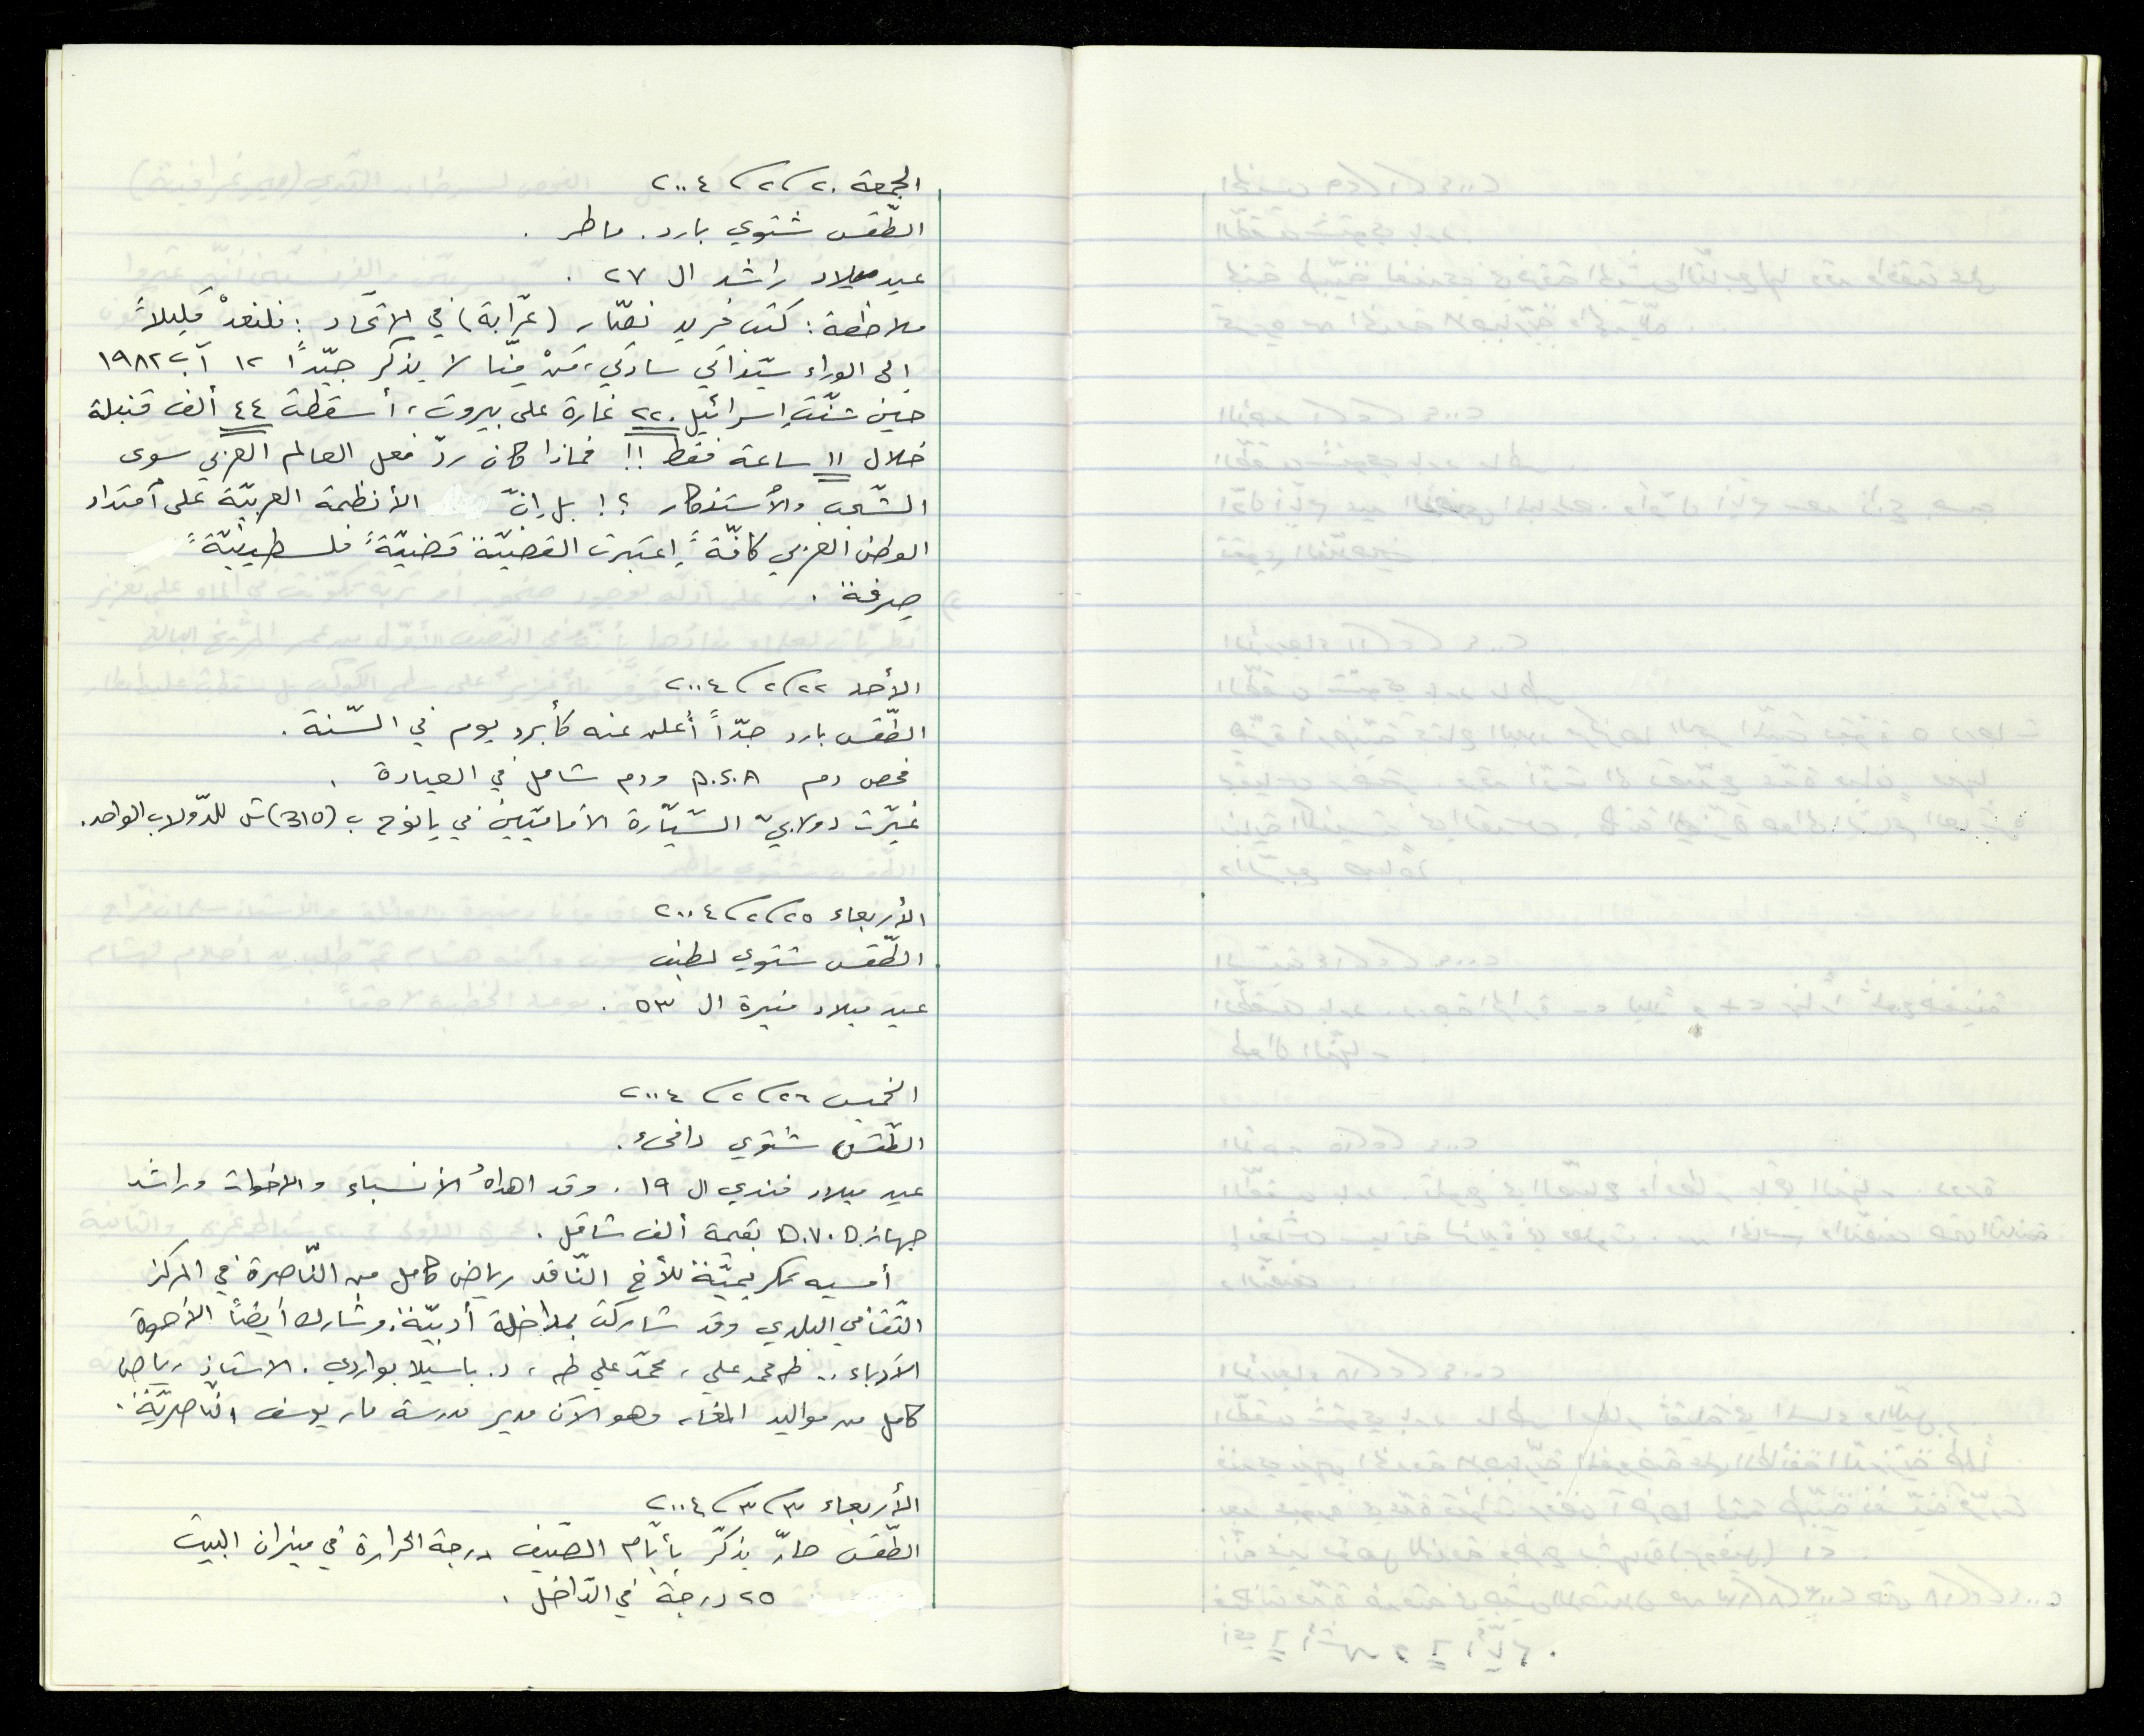 الجمعة ٢٠/٢/٢٠٠٤
الطّقس شتوي بارد. ماطر.
عيد ميلاد راشد ال ٢٧.
ملاحظة: كتب فريد نصّار (عرّابة) في الاتّحاد: فلنعدْ قليلاً
إلى الوراء سيّد أكي ساكي، مَنْ منّا لا يذكر جيّداً ١٢ آب ١٩٨٢
حين شنّت إسرائيل ٢٢٠ غارة على بيروت، أسقطت ٤٤ ألف قنبلة
خلال ١١ ساعة فقط!! فماذا كان ردّ فعل العالم العربي سوى
الشّجب والأستنكار ؟! بل إنّ الأنظمة العربيّة على أمتداد
الوطن العربي كافّةً إعتبرت القضيّة قضيّةً فلسطينيّةً
صِرفة.
الأحد ٢٢/٢/٢٠٠٤
الطّقس بارد جدّاً أعلن عنه كأبرد يوم في السّنة.
فحص دم P.S.A ودم شامل في العيادة.
غيّرت دولابيّ السّيّارة الأماميّين في يانوح ب (310)ش للدّولاب الواحد.
الأربعاء ٢٥/٢/٢٠٠٤
الطّقس شتوي لطيف
عيد ميلاد منيرة ال ٥٣.
الخميس ٢٦/٢/٢٠٠٤
الطّقس شتوي دافىء.
عيد ميلاد فندي ال ١٩. وقد اهداهُ الأنسباء والأخوات وراشد
جهاز D.V.D بقيمة ألف شاقل.
أمسيه تكريميّة للأخ النّاقد رياض كامل من النّاصرة في المركز
الثّقافي البلدي وقد شاركت بمداخلة أدبيّة. وشارك أيضاً الأخوة
الأدباء.. طه محمد علي، محمّد علي طه، د. باسيلا بواردي. الاستاذ رياض
كامل من مواليد المغار وهو الآن مدير مدرسة مار يوسف النّاصريّة.
الأربعاء ٣/٣/٢٠٠٤
الطّقس حارّ يذكّر بأيّام الصّيف درجة الحرارة في ميزان البيت
٢٥ درجة في الدّاخل.